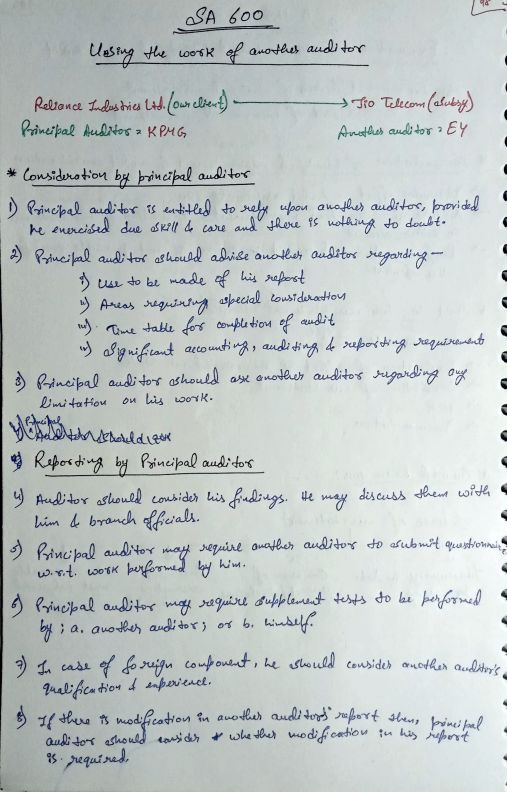 SA 600
Using the work of another auditor
Reliance Industries Ltd. (our client) → Jio Telecom (subsy)
Principal Auditor = KPMG Another auditor = EY
* Consideration by principal auditor
1) Principal auditor is entitled to rely upon another auditor, provided
he exercised due skill & care and there is nothing to doubt.
2) Principal auditor should advise another auditor regarding —
i) Use to be made of his report
ii) Areas requiring special consideration
iii) Time table for completion of audit
iv) Significant accounting, auditing & reporting requirement
3) Principal auditor should ask another auditor regarding any
limitation on his work.
Reporting by Principal auditor
4) Auditor should consider his findings. He may discuss them with
him & branch officials.
5) Principal auditor may require another auditor to submit questionnaire
w.r.t. work performed by him.
6) Principal auditor may require supplement tests to be performed
by ; a. another auditor ; or b. himself.
7) In case of foreign component, he should consider another auditor's
qualification & experience.
8) If there is modification in another auditors' report then, principal
auditor should consider whether modification in his report
is required.